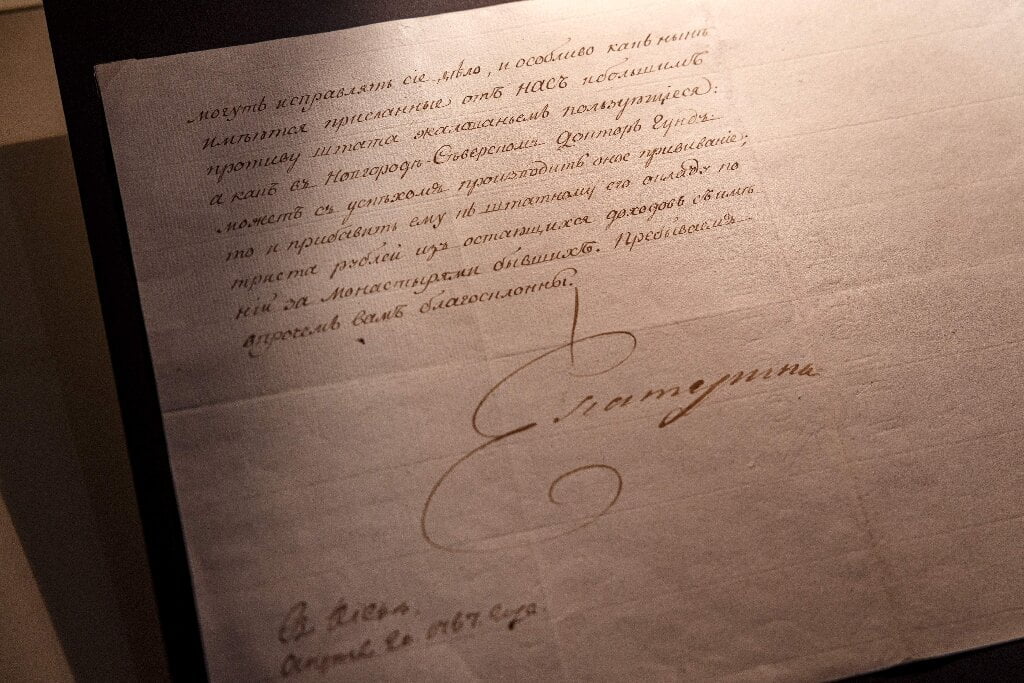 могутъ исправлять сіе дѣло, и особливо какъ нынѣ
имѣются присланные отъ насъ и большимъ
противу штата жалованьемъ пользующіеся:
а какъ въ Новгородѣ-Сѣверскомъ Докторъ Гундъ
можетъ съ успѣхомъ производить оное прививаніе;
то и прибавить ему къ штатному его окладу по
триста рублей изъ остающихся доходовъ съ имѣ
ній за монастырями бывшихъ. Пребываемъ
впрочемъ вамъ благосклонны.
Екатерина